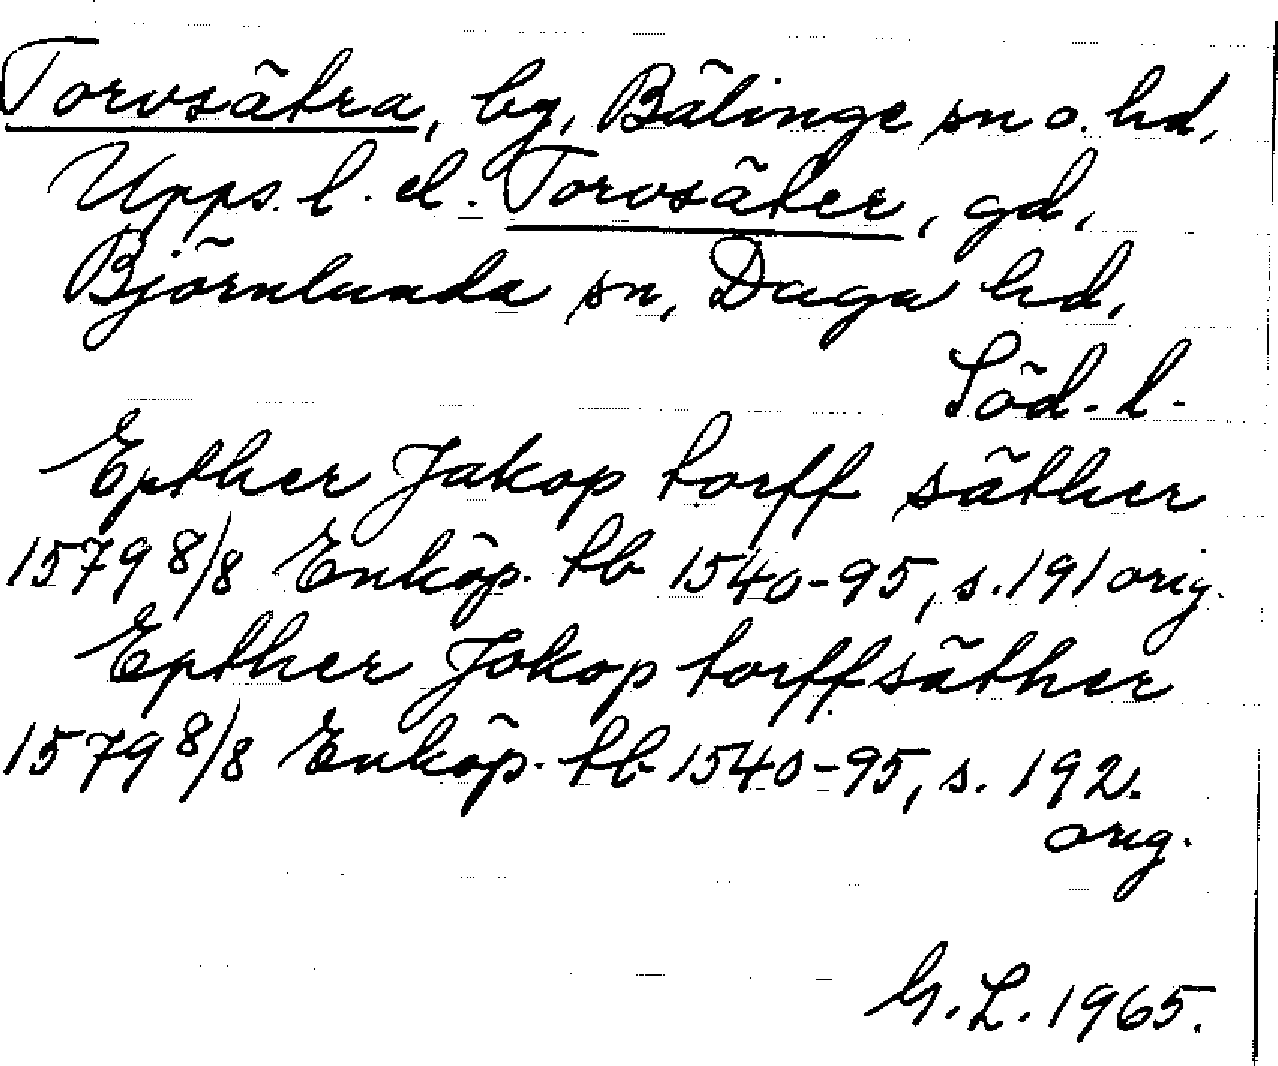 Torvsätra, by, Bälinge sn o. hd,
Upps. l. el. Torvsäter, gd,
Björnlunda sn, Daga hd,
Söd. l.
Epther Jakop torff säther
1579 8/8 Enköp. tb 1540-95, s. 191 orig.
Epther Jokop torffsäther
1579 8/8 Enköp. tb 1540-95, s. 192.
orig.
G. L. 1965.